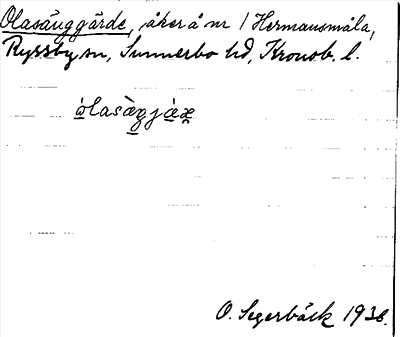 Olasänggärde, åker å nr 1 Hermansmåla,
Ryssby sn, Sunnerbo hd, Kronob. l.
O. Segerbäck 1936.